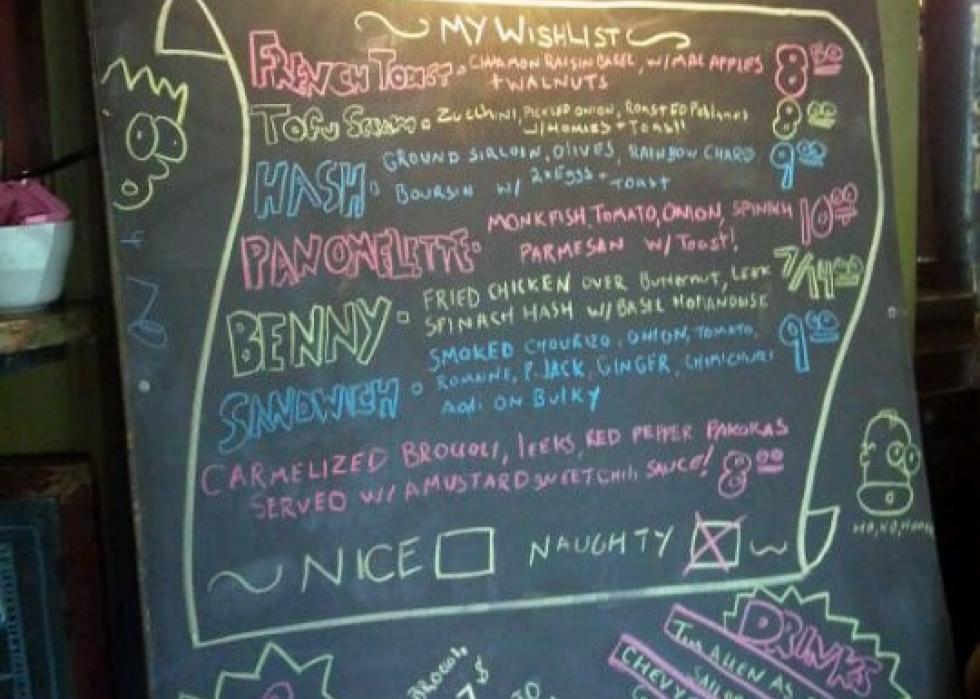 MY WISHLIST
FRENCH TOAST - CINNAMON RAISIN BAGEL, W/MAC APPLES 8 50
+ WALNUTS
TOFU SCRAM - ZUCCHINI, PICKLED ONION, ROASTED POBLANOS 8 00
W/HOMIES + TOAST!
HASH - GROUND SIRLOIN, OLIVES, RAINBOW CHARD 9 00
BOURSIN W/ 2 EGGS + TOAST
PANOMELETTE - MONKFISH, TOMATO, ONION, SPINACH 10 00
PARMESAN W/ TOAST!
BENNY - FRIED CHICKEN OVER BUTTERNUT, LEEK 7/14 00
SPINACH HASH W/ BASIL HOLLANDAISE
SANDWICH - SMOKED CHOURIZO, ONION, TOMATO, 9 00
ROMAINE, P. JACK, GINGER, CHIMICHURRI
AOLI ON BULKY
CARMELIZED BROCCOLI, LEEKS, RED PEPPER PAKORAS
SERVED W/ A MUSTARD SWEET CHILI SAUCE! 8 00
NICE NAUGHTY X
DRINKS
CHEVY